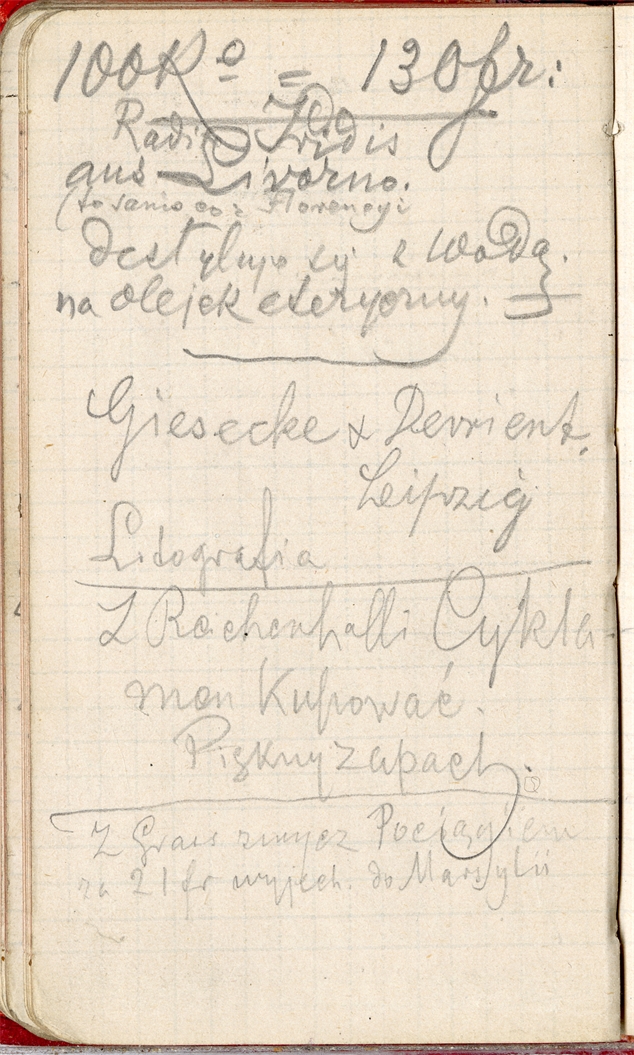 100 Ko = 130 fr:
Radix Iridis
aus Livorno.
(to samo co z Florencyi
destyluje się z wodą.
na olejek eteryczny.
Giesecke & Devrient.
Leipzig
Litografia
Z Reichenhalli Cykla-
men Kupować.
Piękny zapach.
Z Grass Pociągiem
za 21 fr wyjech. do Marsylii